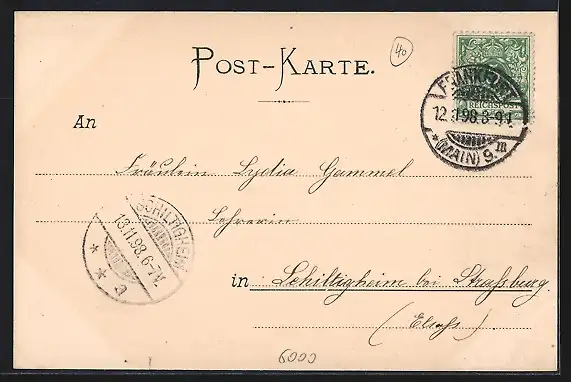 POST-KARTE.
40
5
REICHSPOST
FRANKFURT
12.11.98.3-4N
* (MAIN) 9. m
An
Fräulein Lydia Gammel
Lehrerin
SCHILTIGHEIM
13.11.98.6-7V.
* * c
in Schiltigheim bei Straßburg
(Elsaß)
6000